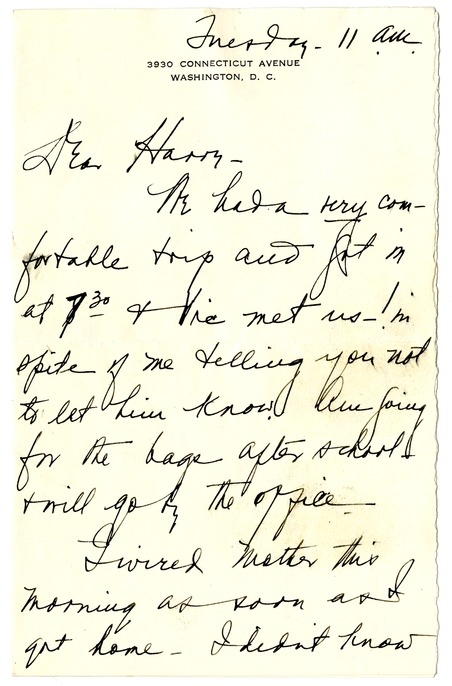 Tuesday - 11 am.
3930 CONNECTICUT AVENUE
WASHINGTON, D. C.
Dear Harry -
We had a very com-
fortable trip and got in
at 7 30 & Vic met us - ! in
spite of me telling you not
to let him know. Am going
for the bags after school
& will go by the office -
I wired Mother this
morning as soon as I
got home - I didn't know